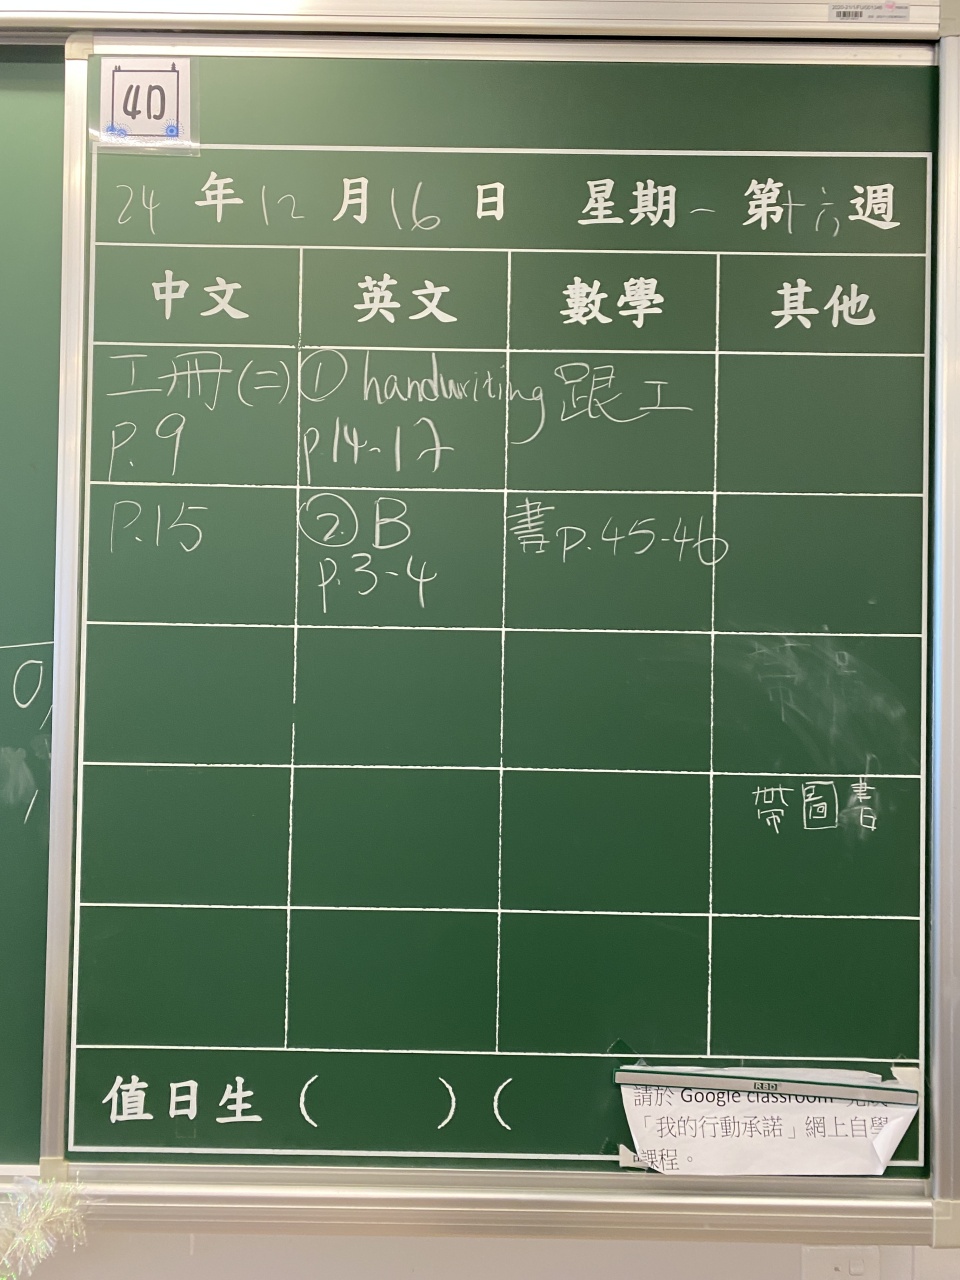 4D
24 年 12 月 16 日 星期一 第十六週
中文 英文 數學 其他
工冊(二) ① handwriting 跟工
p.9 p.14-17
P.15 ② B 書p.45-46
p.3-4
帶圖書
值日生 ( ) (
RBD
請於 Google classroom
「我的行動承諾」網上自學
課程。